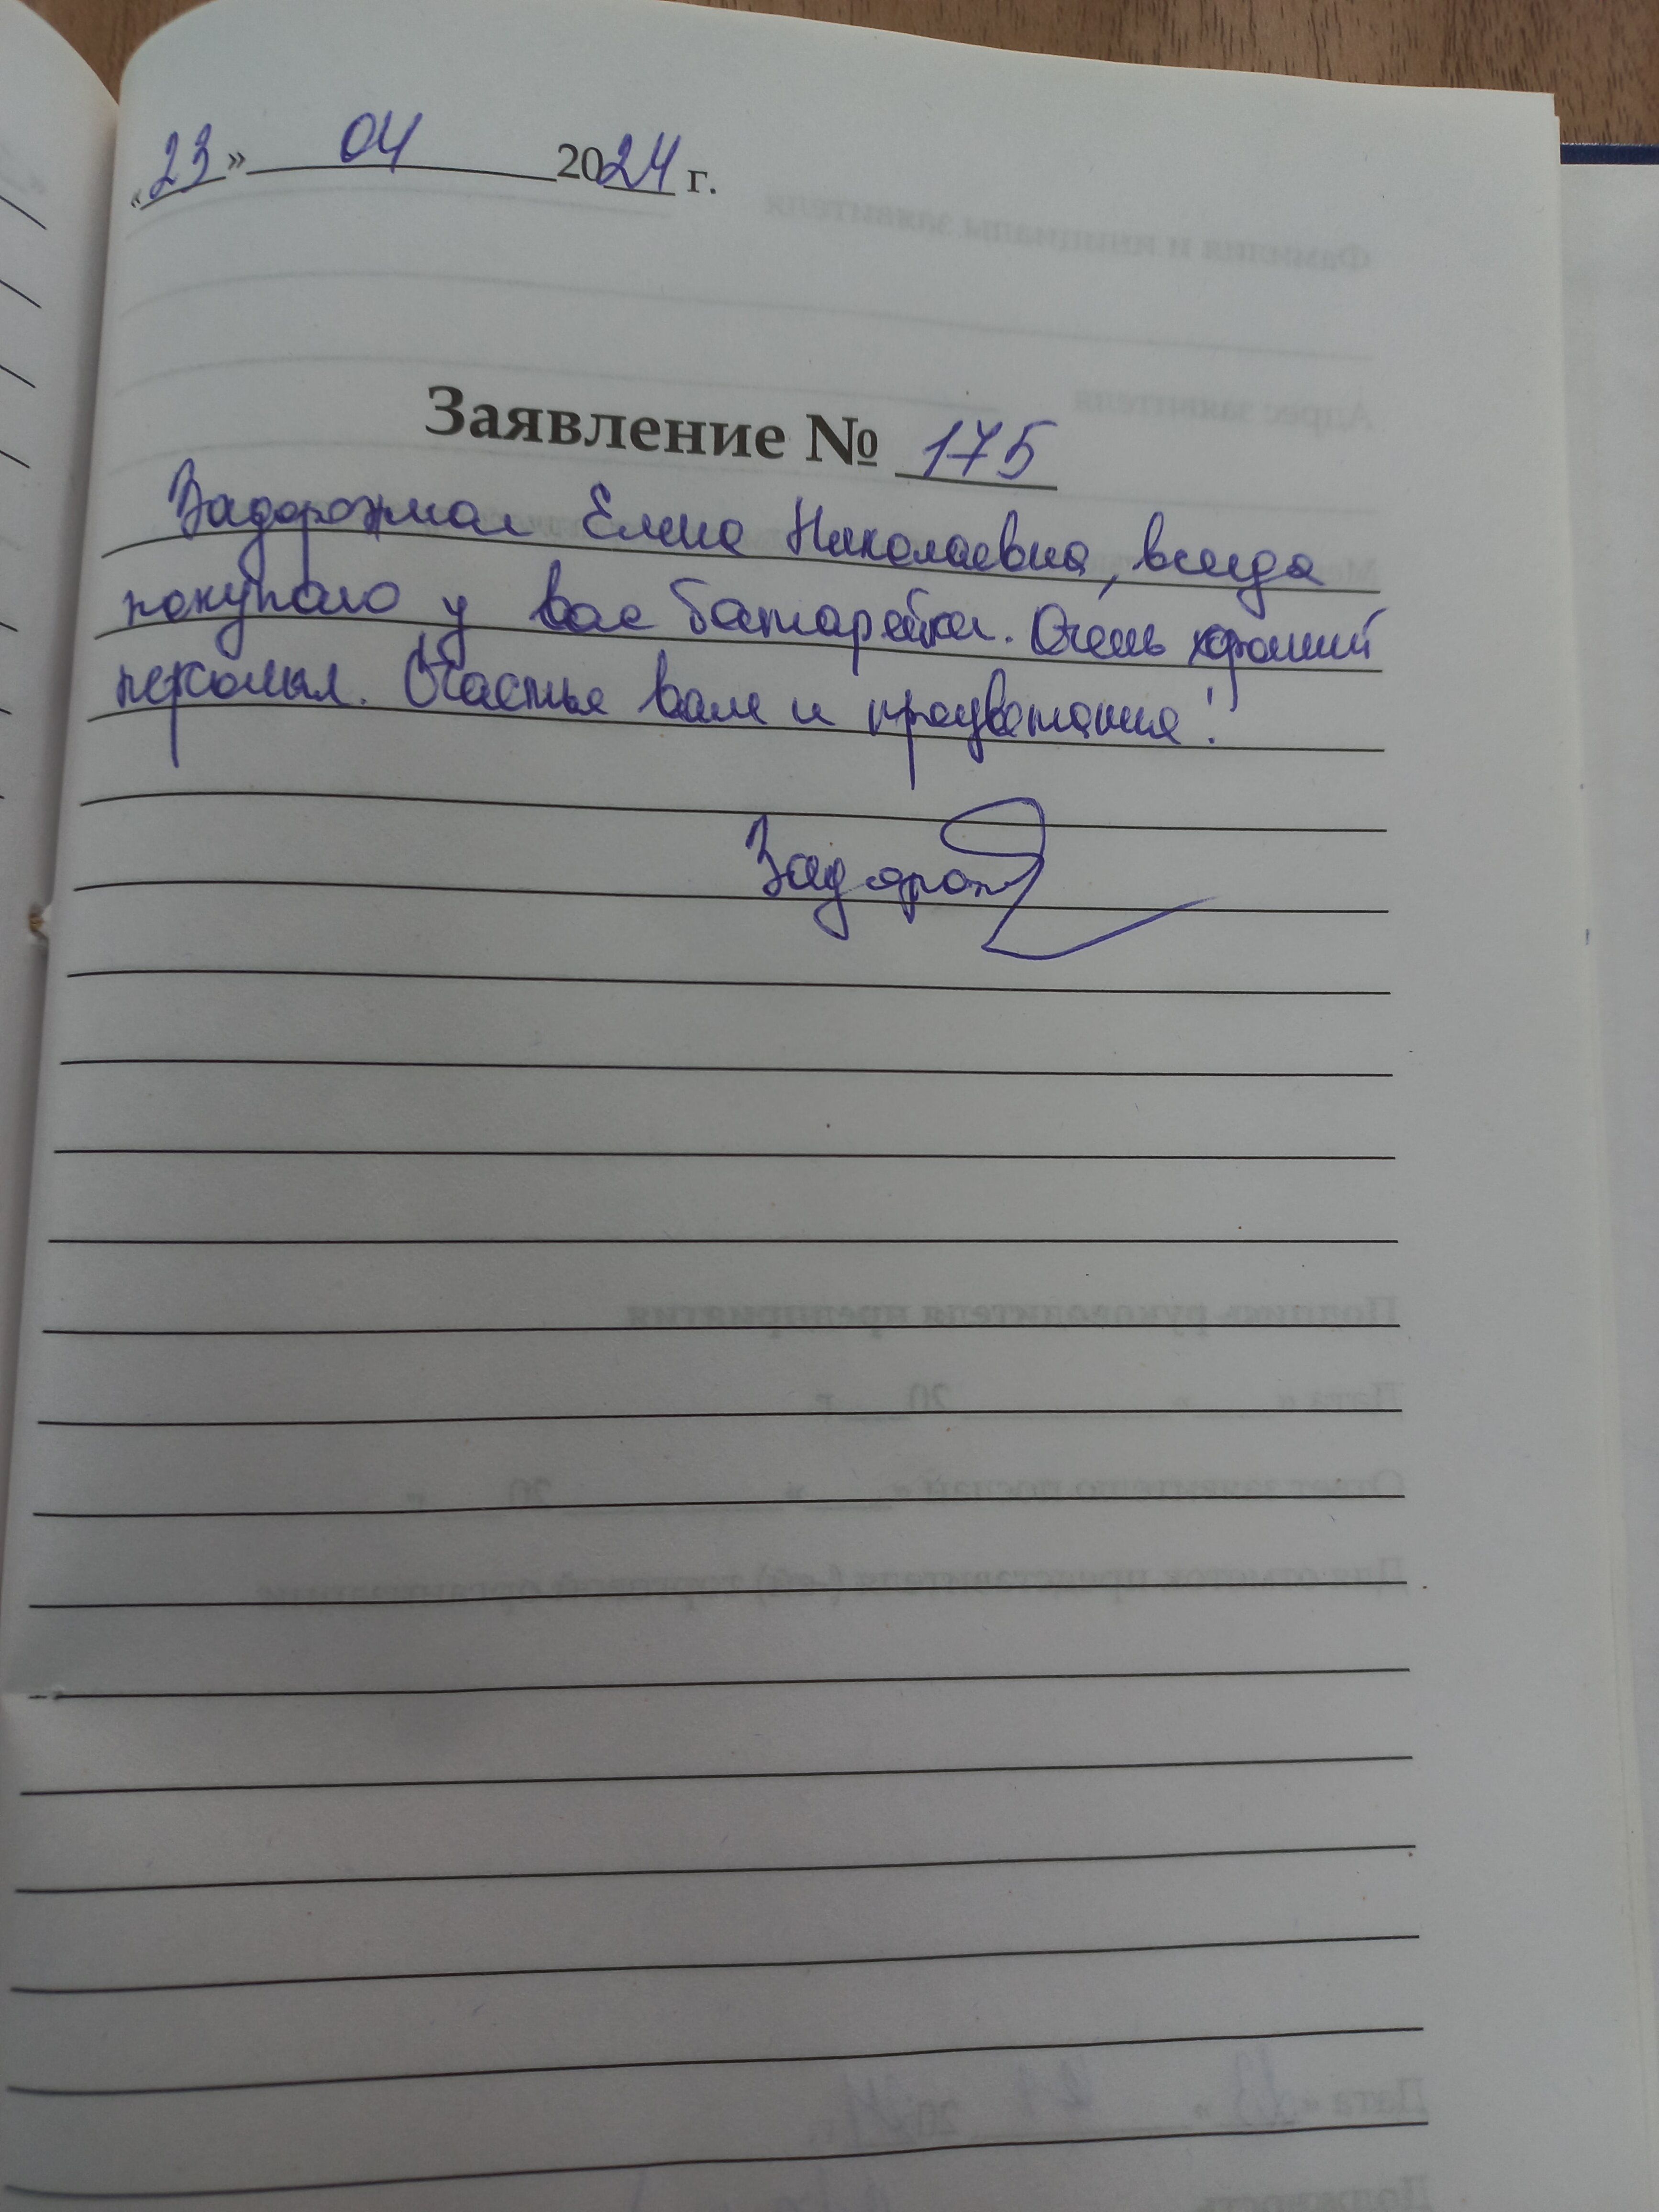 «23» 04 2024 г.
Заявление № 175
Задорожная Елена Николаевна, всегда
покупаю у вас батарейки. Очень хороший
персонал. Счастья вам и процветания!
Задорож